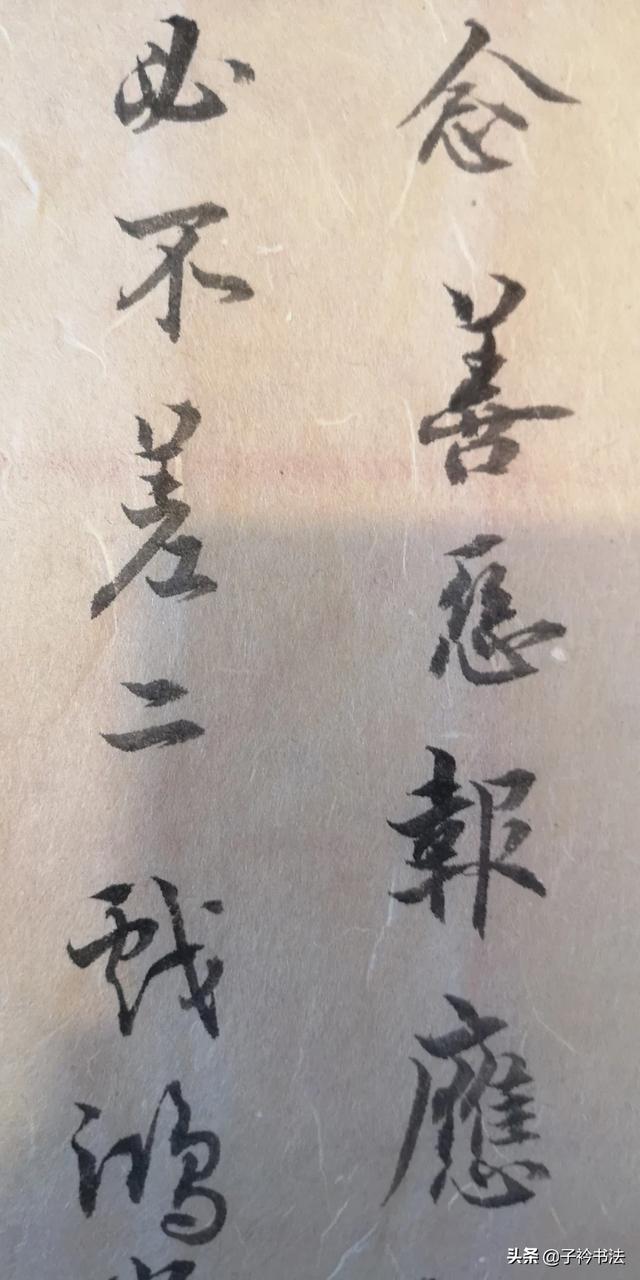 念善惡報應
必不差二戲鴻
头条 @子衿书法